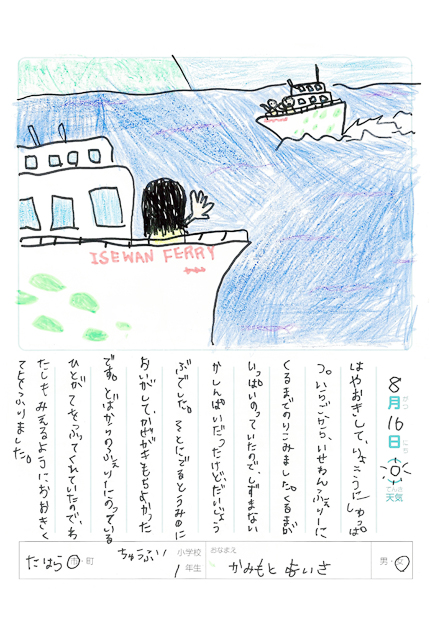 ISEWAN FERRY
8月16日
がつ
にち
てんき
天気
はやおきして、りょこうにしゅっぱ
つ。いらごから、いせわんふぇりーに
くるまでのりこみました。くるまが
いっぱいのっていたので、しずまない
かしんぱいだったけど、だいじょう
ぶでした。そとにでるとうみのに
おいがして、かぜがきもちよかった
です。とばからのふぇりーにのっている
ひとがてをふってくれていたので、わ
たしもみえるようにおおきく
てをふりました。
たはら 市・町
ちゅうぶ 小学校
1年生
おなまえ
かみもと めいさ
男・女